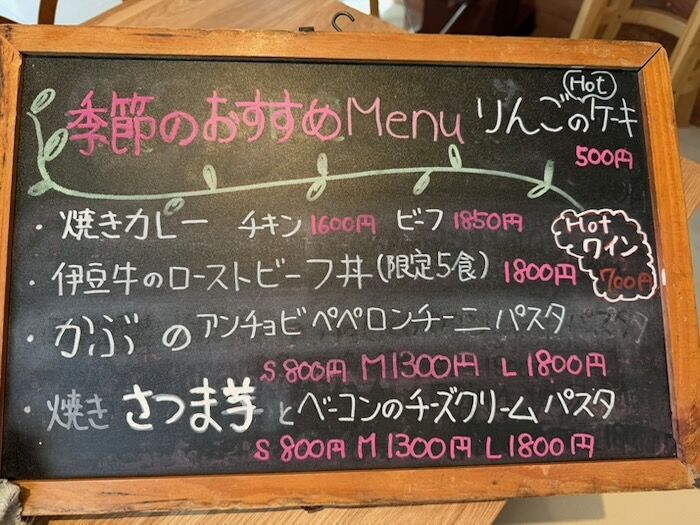 季節のおすすめMenu
Hot
りんごのケーキ
500円
・焼きカレー チキン1600円 ビーフ1850円
Hot
ワイン
700円
・伊豆牛のローストビーフ丼(限定5食) 1800円
・かぶのアンチョビペペロンチーニパスタ
S 800円 M 1300円 L 1800円
・焼きさつま芋とベーコンのチーズクリームパスタ
S 800円 M 1300円 L 1800円